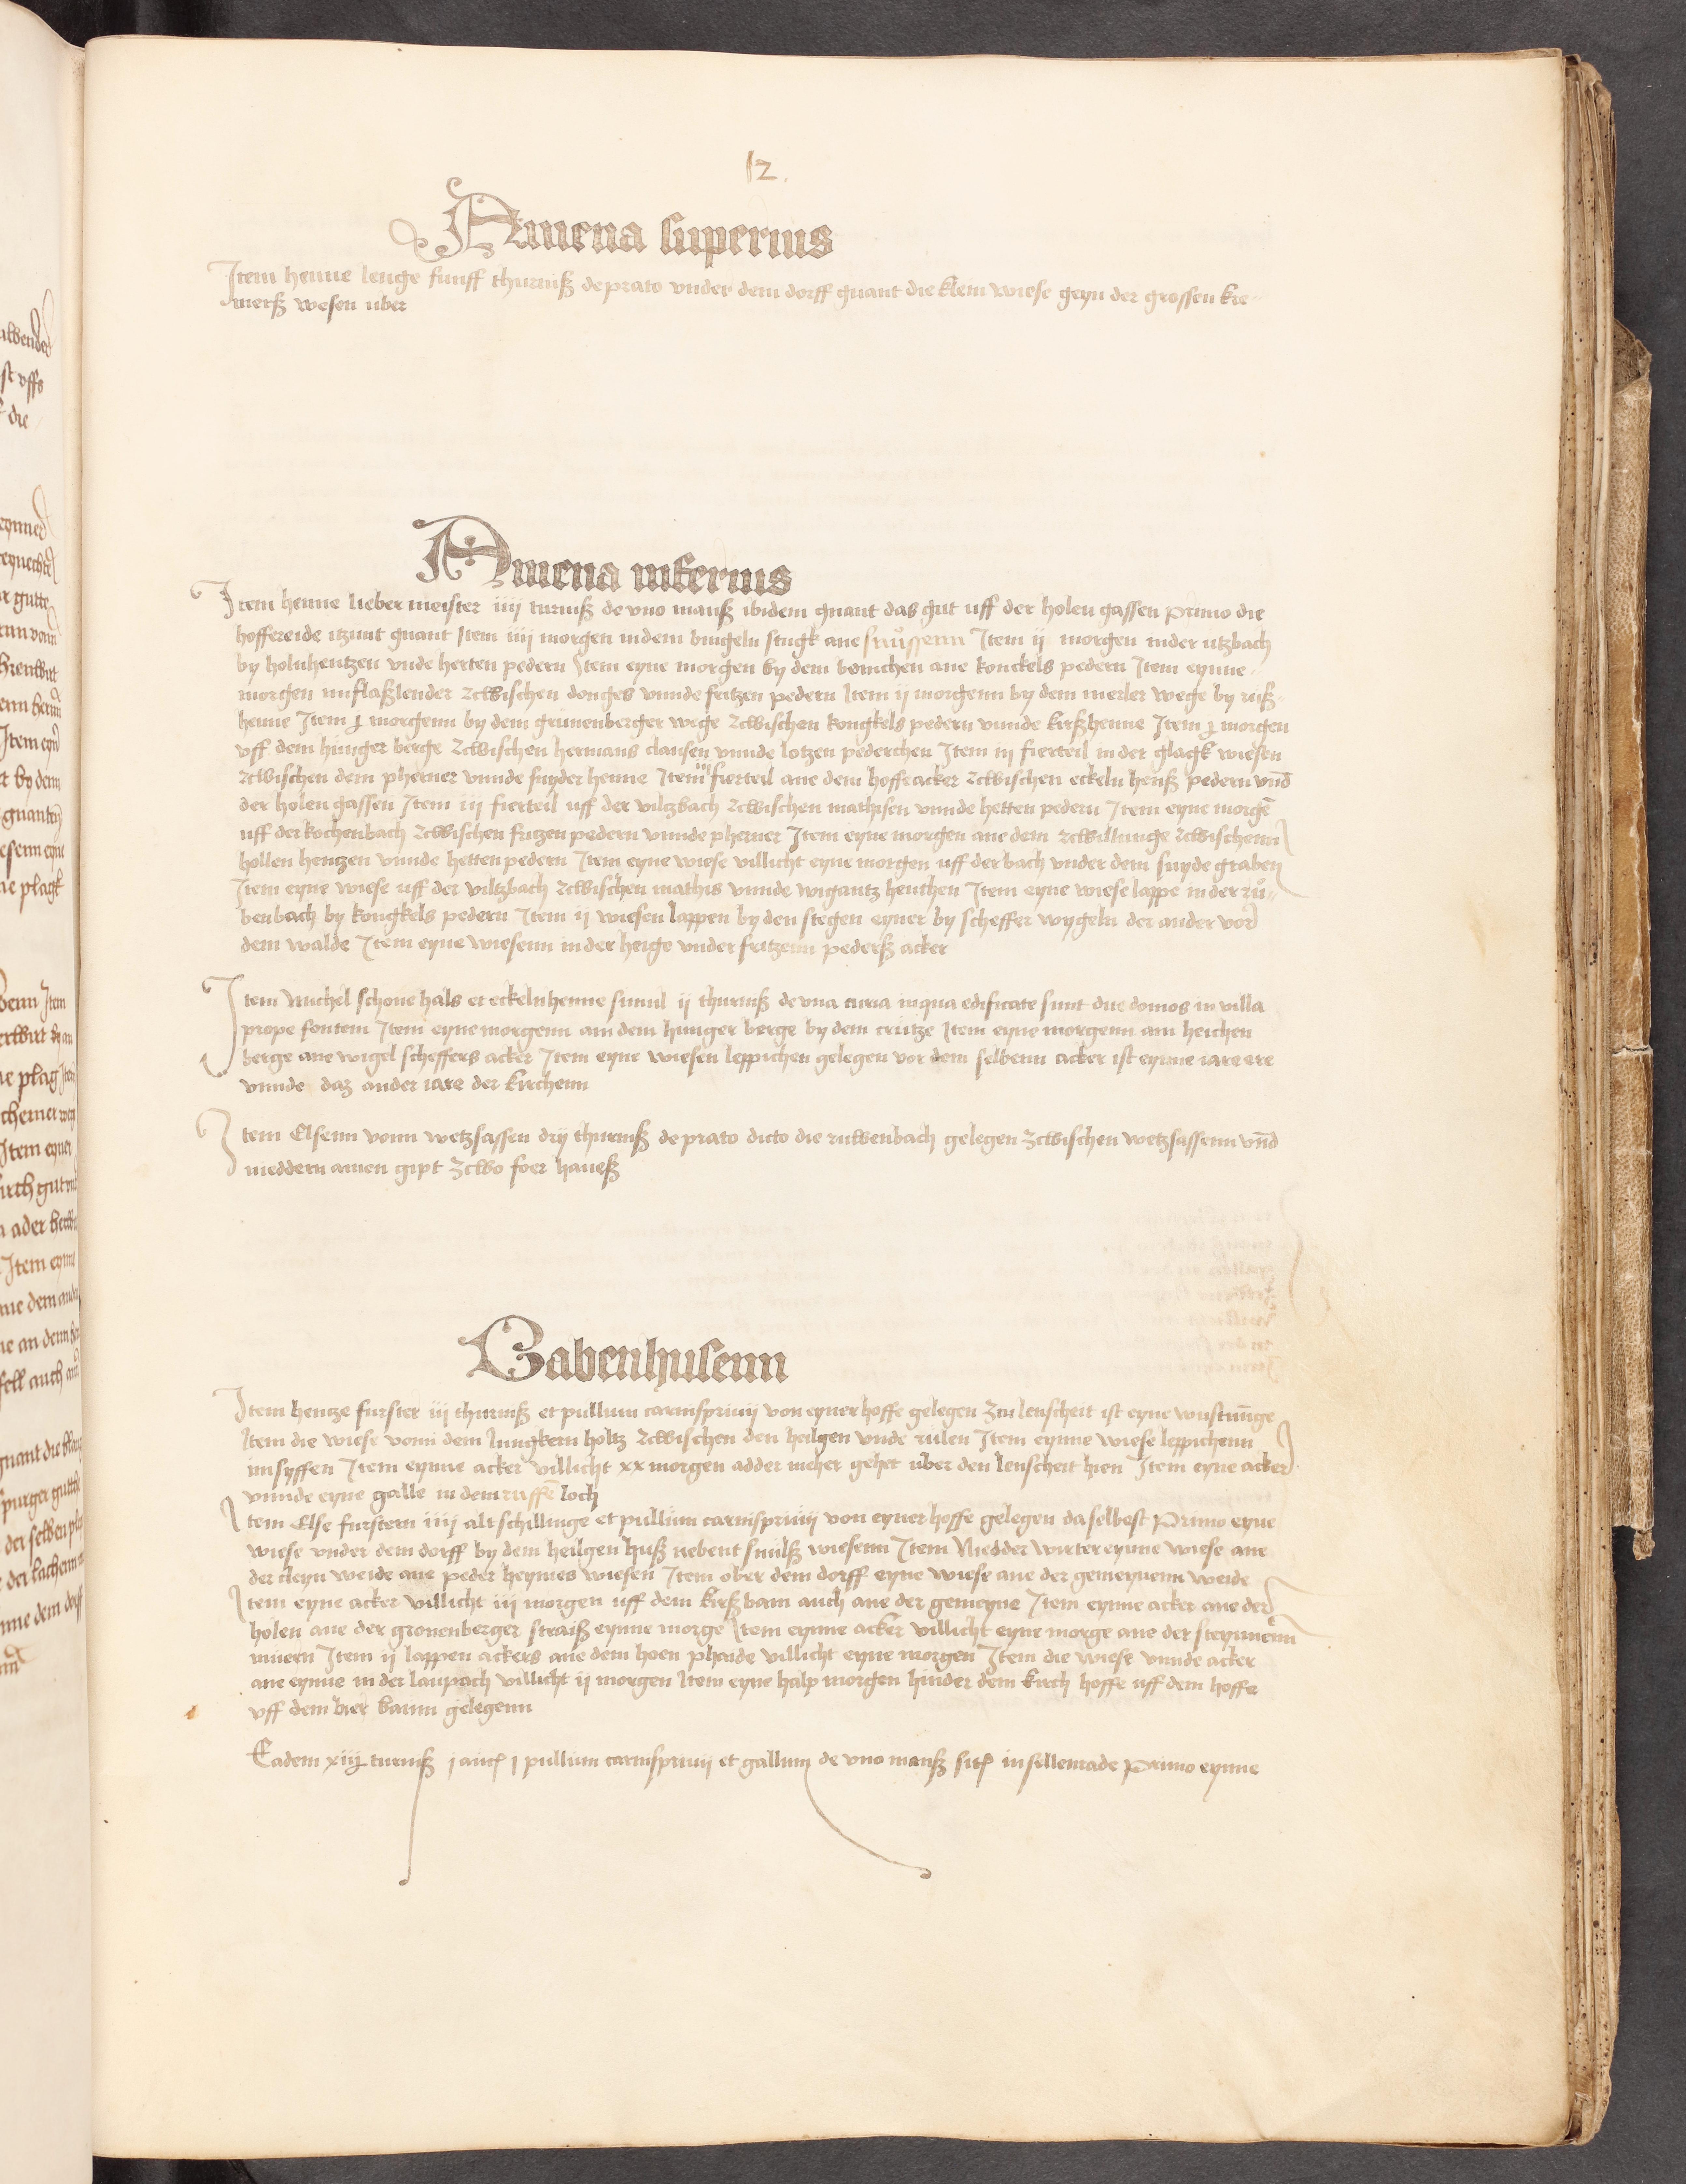 12.
Amena superius
Item henne lenge funff thurniß de prato vnder dem dorff gnant die klem wiese geyn der grossen kre-
merß wesen uber
Amena inferius
Item henne lieber meister iiij turniß de vno manß ibidem gnant das gut uff der holen gassen Primo die
hoffereide itzunt gnant Item iiij morgen indem bingeln stugk ane snůssenn Item ij morgen inder utzbach
by holnhentzen vnde herten pedern Item eyne morgen by dem bomchen ane konckels pedern Item eynne
morgen imflaßlender zcwischen donges vnnde fritzen pedern Item ij morgenn by dem merler wege by ruß
henne Item morgenn by dem grunenberger wege zcwischen kongkels pedern vnnde kirßhenne Item morgen
vff dem hunger berge zcwischen hermans clausen vnnde lotzen pederchen Item iij fierteil inder glagk wiesen
zcwischen dem pherner vnnde snyder henne Item iij firteil ane dem hoffeacker zcwischen eckeln henß pedern vnd
der holen gassen Item iij fierteil uff der viltzbach zcwischen mathisen vnnde hetten pedern Item eyne morgē
uff der kochenbach zcwischen fritzen pedern vnnde pherner Item eyne morgen ane dem zcwillunge zcwischenn
hollen hentzen vnnde hetten pedern Item eyne wiese villicht eyne morgen uff der bach vnder dem snyde graben
Item eyne wiese uff der viltzbach zcwischen mathis vnnde wigantz henchen Item eyne wiese lappe inder rů-
benbach by kongkels pedern Item ij wiesen lappen by den stegen eyner by scheffer wygeln der ander vor
dem walde Item eyne wiesenn inder heige vnder fritzenn pederß acker
Item Michel schone hals et eckelnhenne simul ij thurniß de vna curia inqua edificate sunt due domos in villa
prope fontem Item eyne morgenn am dem hunger berge by dem crutze Item eyne morgenn am heichen
berge ane wigel scheffers acker Item eyne wiesen leppichen gelegen vor dem selbenn acker ist eynne iare ere
vnnde daz ander iare der kirchenn
Item Elsenn vonn wetzsassen drij thurniß de prato dicto die ruwenbach gelegen zcwischen wetzsassenn vnd
neddern amen gipt zcwo foer haueß
Gabenhusenn
Item hentze furster iij thurniß et pullum carnispriuij von eyner hoffe gelegen zcu lenscheit ist eyne wustunge
Item die wiese vonn dem lungkern holtz zcwischen den heilgen vnde rulen Item eynne wiese leppichenn
imsyffen Item eynne acker villicht xx morgen adder meher gehet uber den lenscheit hien Item eyne acker
vnnde eyne galle in dem ruffē loch
Item Else furstern iiij alt schillinge et pullum carnispriuij von eyner hoffe gelegen daselbest Primo eyne
wiese vnder dem dorff by dem heilgen huß nebent smilß wiesenn Item Nedder wirter eynne wiese ane
der cleyn weide ane peder heymes wiesen Item ober dem dorff eyne wiese ane der gemeynenn weide
Item eyne acker villicht iij morgen uff dem kirßbam auch ane der gemeyne Item eynne acker ane der
holen ane der gronenberger straiß eynne morge Item eynne acker villicht eyne morge ane der steynnenn
muern Item ij lappen ackers ane dem hoen phaide villicht eyne morgen Item die wiese vnnde acker
ane eynne in der laupach villicht ij morgen Item eyne halp morgen hinder dem kirch hoffe uff dem hoffe
vff dem bier baum gelegenn
Eadem xiij turniß j pullum carnispriuij et gallum de vno manß in sellenrade Primo eynne